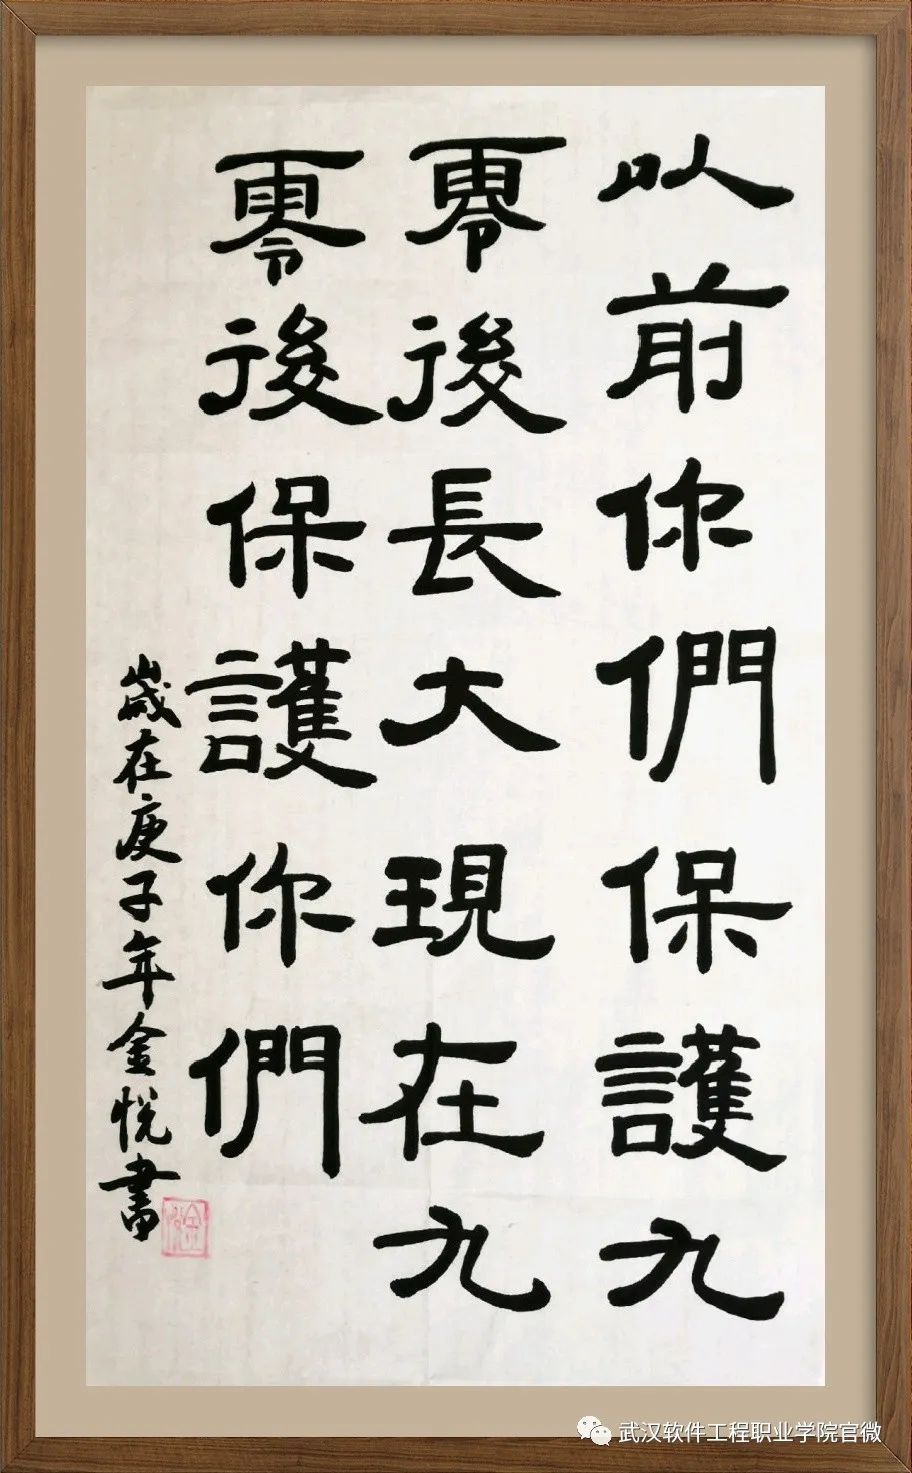 以前你們保護九
零後長大現在九
零後保護你們
歲在庚子年金悦書
武汉软件工程职业学院官微